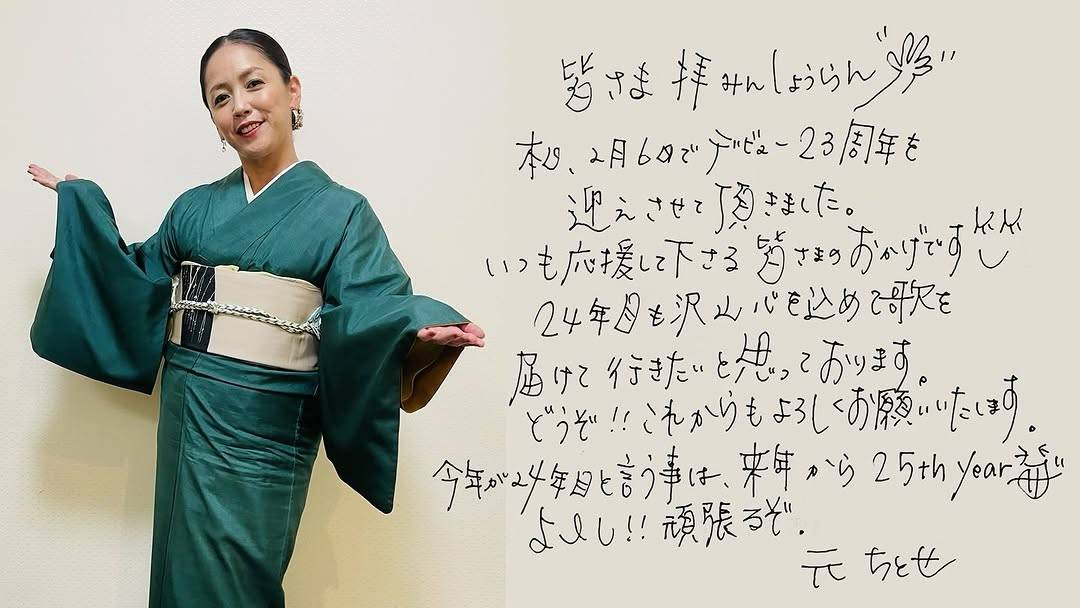 皆さま 拝みんしょうらん
本日、2月6日でデビュー23周年を
迎えさせて頂きました。
いつも応援して下さる皆さまのおかげです
24年目も沢山心を込めて歌を
届けて行きたいと思っております。
どうぞ!!これからもよろしくお願いいたします。
今年が24年目と言う事は、来年から25th year
よいし!!頑張るぞ.
元 ちとせ